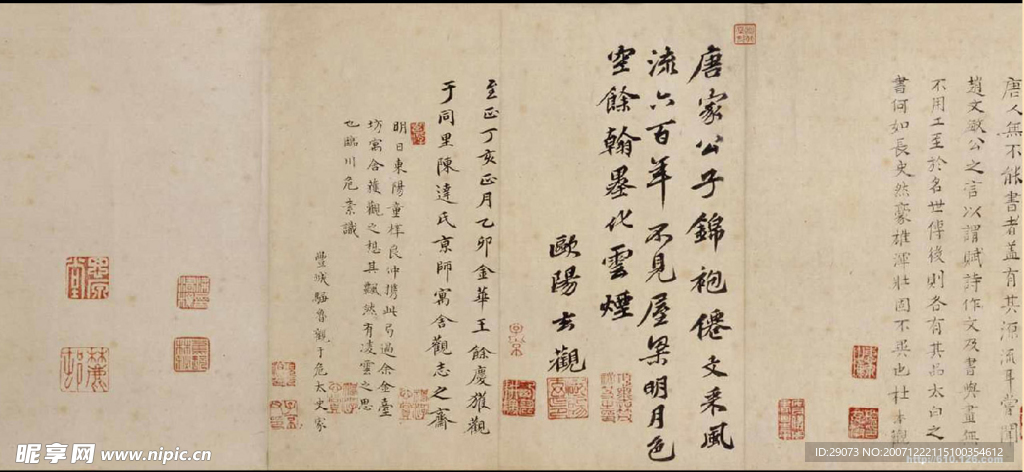 唐人無不能書者蓋有其源流耳嘗聞
趙文敏公之言以謂賦詩作文及書與畫無
不用工至於名世傳後則各有其品太白之
書何如長史然豪雄渾壯固不異也杜本觀
唐家公子錦袍僊文采風
流六百年不見屋梁明月色
空餘翰墨化雲煙
歐陽玄觀
至正丁亥正月乙卯金華王餘慶獲觀
于同里陳達氏京師寓舍觀志之齋
明日東陽童梓良仲攜此過余金臺
坊寓舍獲觀之想其飄然有凌雲之思
也臨川危素識
豐城騶魯觀于危太史家
昵享网 www.nipic.cn
ID:29073 NO:20071222115100354612